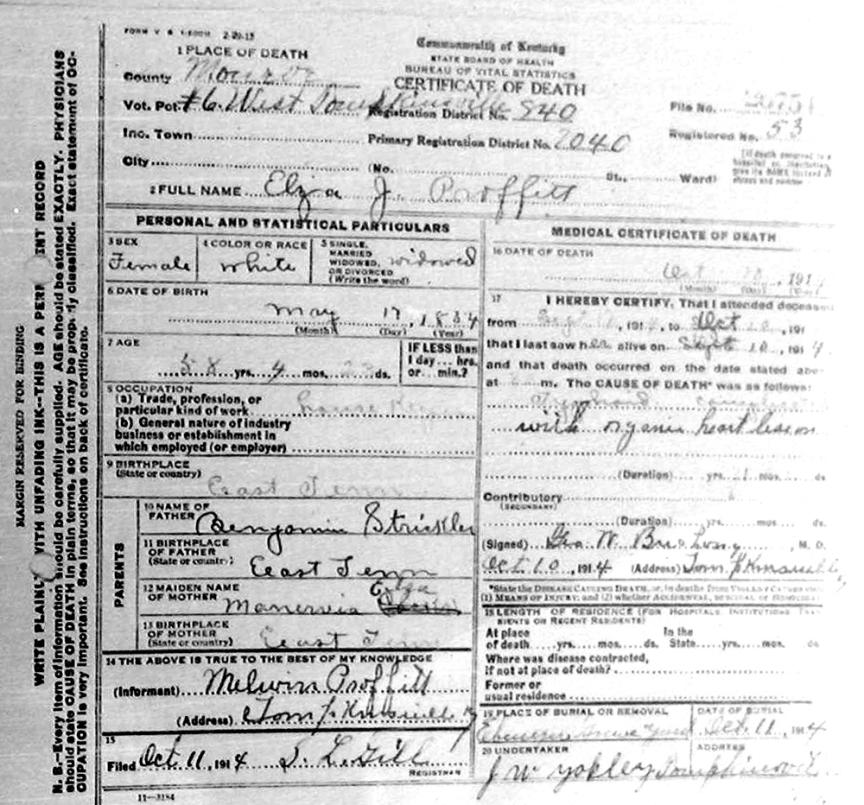 MARGIN RESERVED FOR BINDING
WRITE PLAINLY WITH UNFADING INK—THIS IS A PER INT RECORD
N. B.—Every item of information should be carefully supplied. AGE should be stated EXACTLY. PHYSICIANS
should state CAUSE OF DEATH in plain terms, so that it may be prop ly classified. Exact statement of OC-
CUPATION is very important. See instructions on back of certificate.
FORM V. S. 2-20-13
1 PLACE OF DEATH
County Monroe
Vot. Pct. #6 West Tompkinsville
Inc. Town
City
Commonwealth of Kentucky
STATE BOARD OF HEALTH
BUREAU OF VITAL STATISTICS
CERTIFICATE OF DEATH
Registration District No. 840
Primary Registration District No. 2040
(No. St., Ward)
File No.
Registered No. 53
2 FULL NAME Elza J. Proffitt
PERSONAL AND STATISTICAL PARTICULARS
3 SEX
Female
4 COLOR OR RACE
White
5 SINGLE, MARRIED WIDOWED, OR DIVORCED (Write the word) widowed
6 DATE OF BIRTH
May 17, 1834
(Month) (Day) (Year)
7 AGE
58 yrs. 4 mos. 23 ds.
IF LESS than
1 day... hrs.
or... min.?
8 OCCUPATION
(a) Trade, profession, or
particular kind of work
(b) General nature of industry
business or establishment in
which employed (or employer)
9 BIRTHPLACE
(State or country)
East Tenn
PARENTS
10 NAME OF
FATHER Benjamin Strickler
11 BIRTHPLACE
OF FATHER
(State or country) East Tenn
12 MAIDEN NAME
OF MOTHER Manervia
13 BIRTHPLACE
OF MOTHER
(State or country) East Tenn
14 THE ABOVE IS TRUE TO THE BEST OF MY KNOWLEDGE
(Informant) Melvin Proffitt
(Address) Tompkinsville Ky
15
Filed Oct. 11, 1914 S. L. Gill
REGISTRAR
11—3184
MEDICAL CERTIFICATE OF DEATH
16 DATE OF DEATH
Oct 10, 1914
(Month) (Day) (Year)
17 I HEREBY CERTIFY, That I attended deceased
from Sept 1914, to Oct 10, 191
that I last saw her alive on Sept 10, 1914,
and that death occurred on the date stated above
at m. The CAUSE OF DEATH* was as follows:
with organic heart lesion
(Duration) yrs. mos. ds.
Contributory
(SECONDARY)
(Duration) yrs. mos. ds.
(Signed) Geo W. , M. D.
Oct 10, 1914 (Address) Tompkinsville
*State the DISEASE CAUSING DEATH, or, in deaths from VIOLENT CAUSES
(1) MEANS OF INJURY; and (2) whether ACCIDENTAL, SUICIDAL or HOMICIDAL
18 LENGTH OF RESIDENCE (FOR HOSPITALS, INSTITUTIONS, TRANSIENTS OR RECENT RESIDENTS)
At place In the
of death yrs. mos. ds. State yrs. mos. ds.
Where was disease contracted,
if not at place of death?
Former or
usual residence
19 PLACE OF BURIAL OR REMOVAL
Ebenezer Grave Yard
DATE OF BURIAL
Oct. 11, 1914
20 UNDERTAKER
J W Yokley
ADDRESS
Tompkinsville